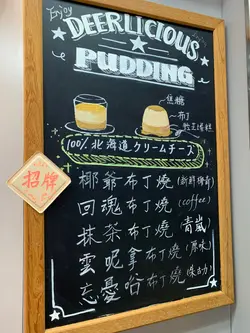 Enjoy
DEERLICIOUS
PUDDING
焦糖
布丁
100% 北海道クリームチーズ
招牌
椰爺布丁燒(新鮮椰青)
回魂布丁燒(coffee)
抹茶布丁燒(青嵐)
雲呢拿布丁燒(原味)
忘憂谷布丁燒(朱古力)